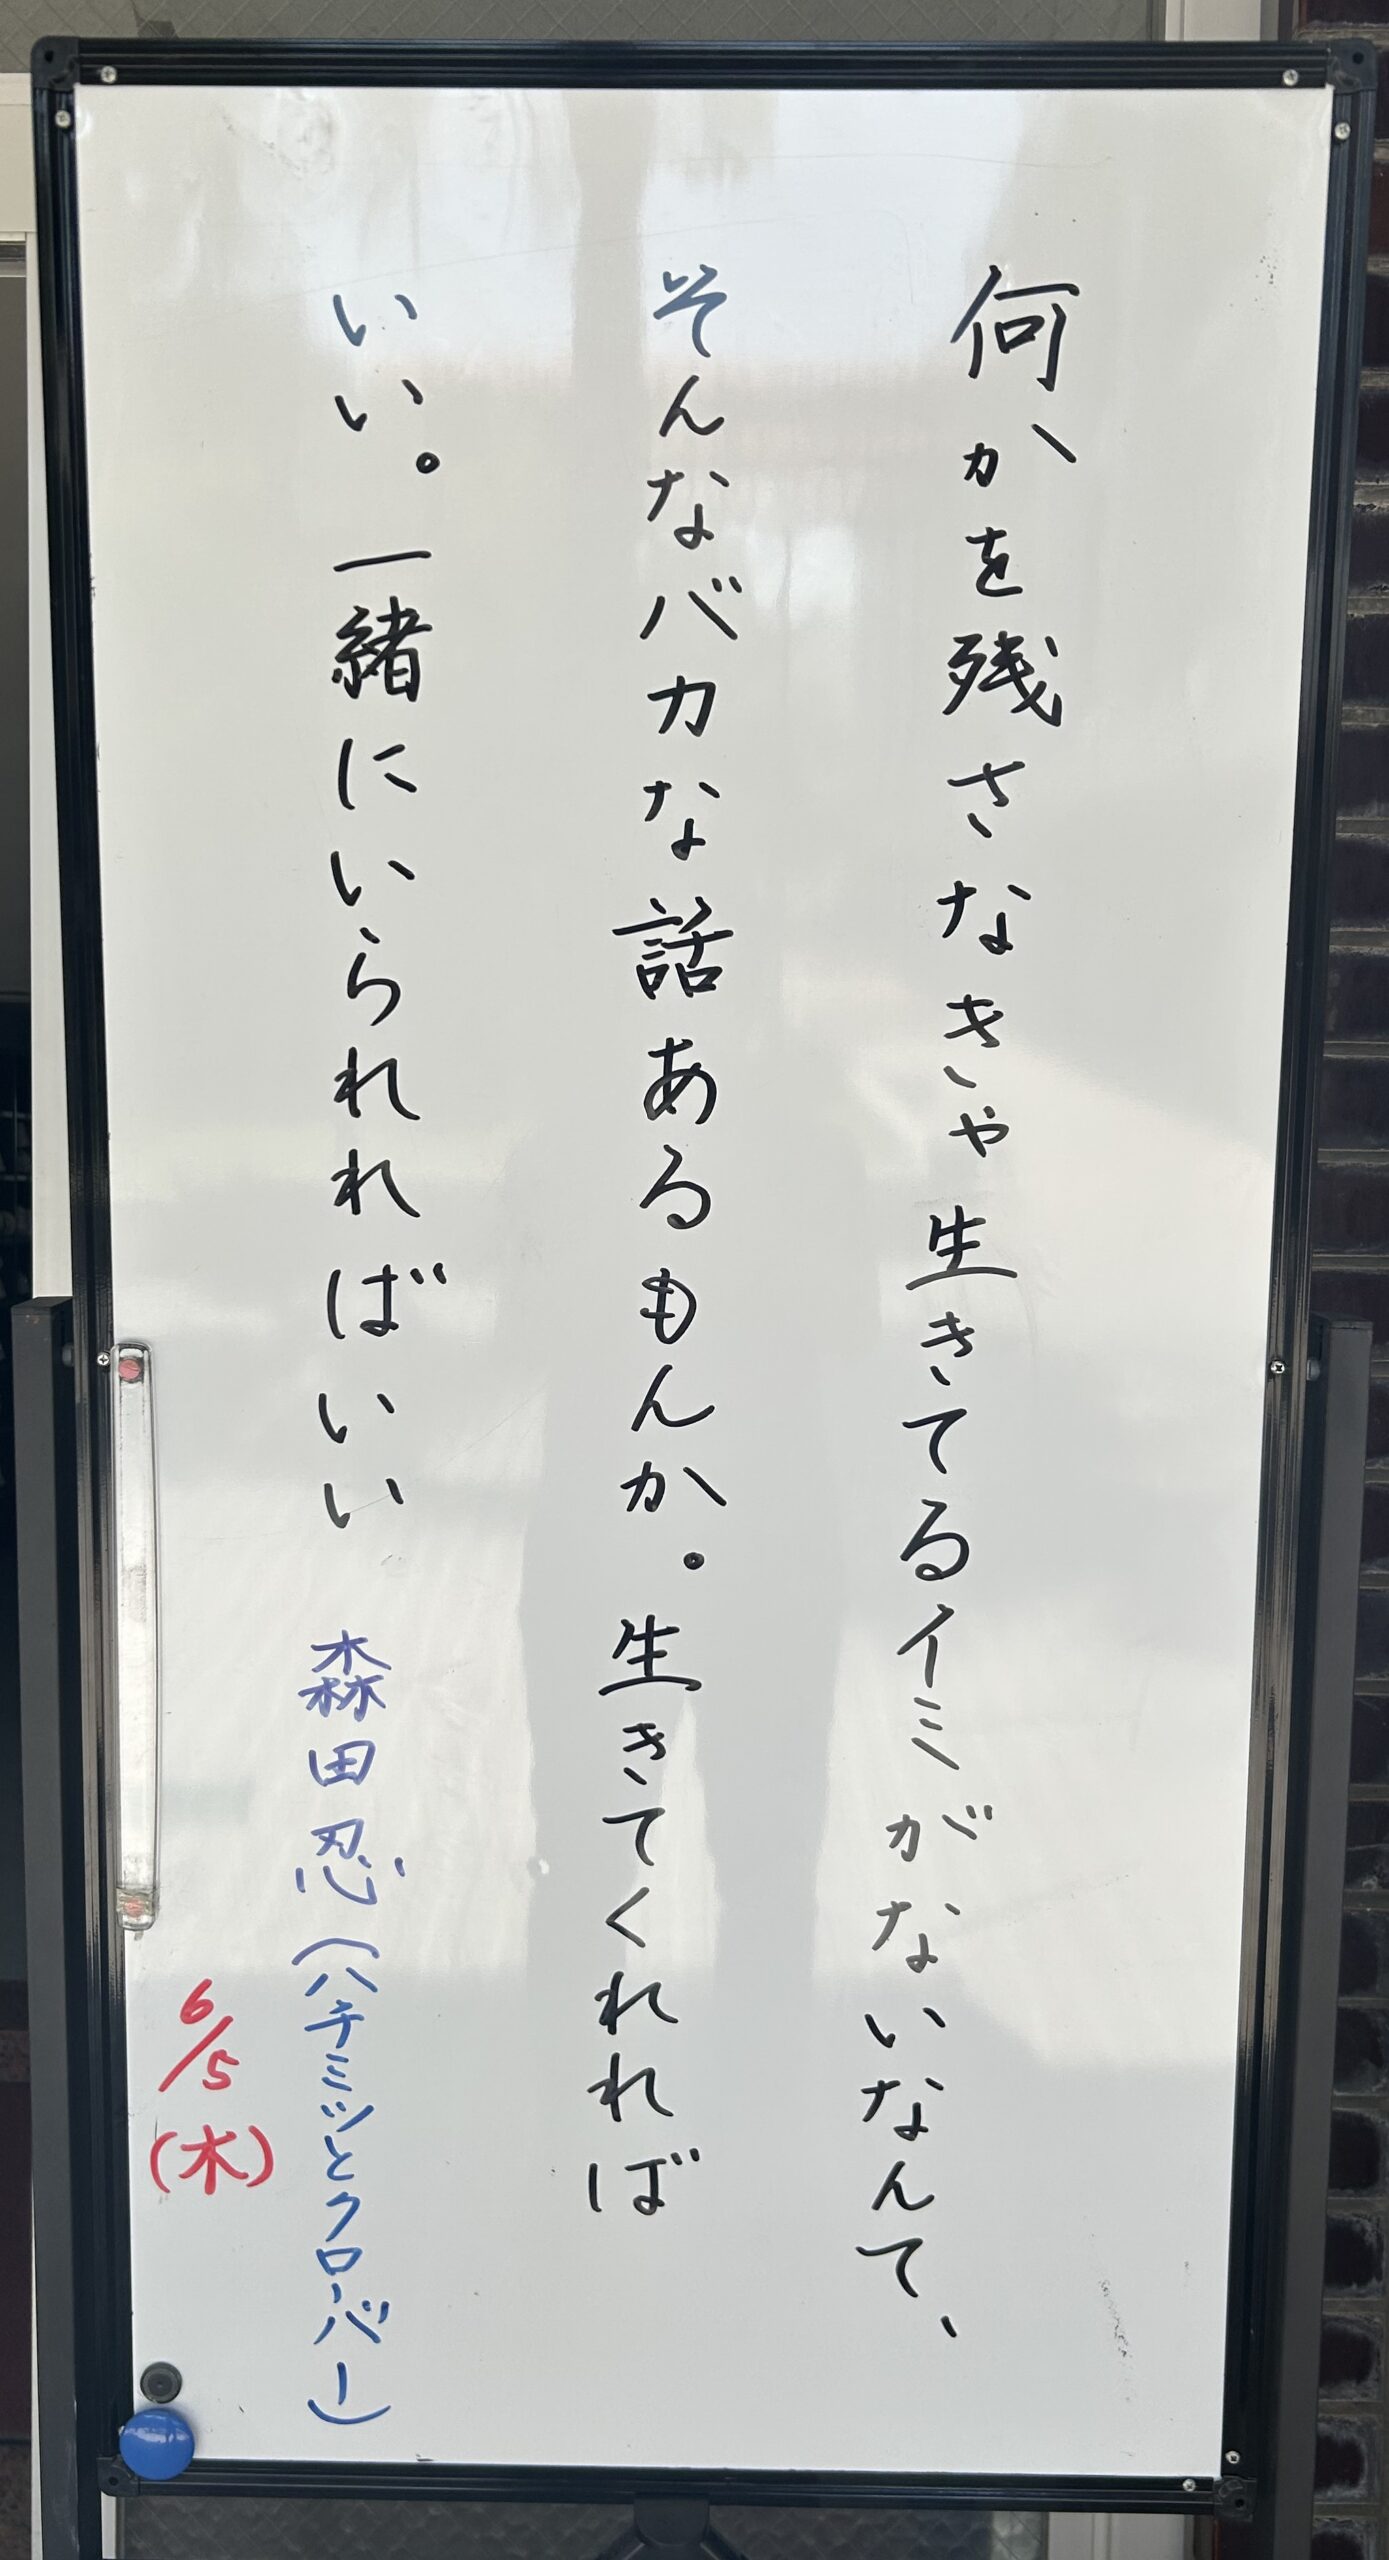 何かを残さなきゃ生きてるイミがないなんて、
そんなバカな話あるもんか。生きてくれれば
いい。一緒にいられればいい 森田忍(ハチミツとクローバー)
6/5(木)